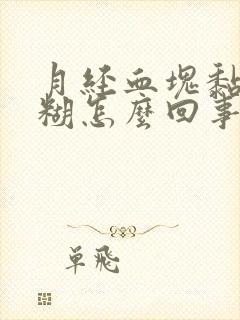 月経血塊黏
糊怎麼回事
單飛